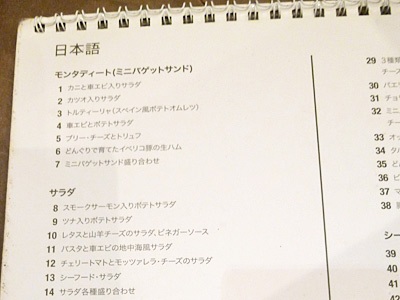 日本語
モンタディート(ミニバゲットサンド)
1 カニと車エビ入りサラダ
2 カツオ入りサラダ
3 トルティーリャ(スペイン風ポテトオムレツ)
4 車エビとポテトサラダ
5 ブリー・チーズとトリュフ
6 どんぐりで育てたイベリコ豚の生ハム
7 ミニバゲットサンド盛り合わせ
サラダ
8 スモークサーモン入りポテトサラダ
9 ツナ入りポテトサラダ
10 レタスと山羊チーズのサラダ、ビネガーソース
11 パスタと車エビの地中海風サラダ
12 チェリートマトとモッツァレラ・チーズのサラダ
13 シーフード・サラダ
14 サラダ各種盛り合わせ
29 3種類
チース
30 パエ
31 チョリ
32 ミニ
33 オッ
34 タパ
35
36 ピ
37 マ
38
シー
39
40
41
42
43